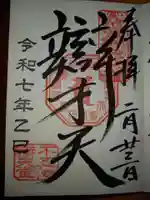 奉拝
二月廿二日
辨才天
令和七年乙巳